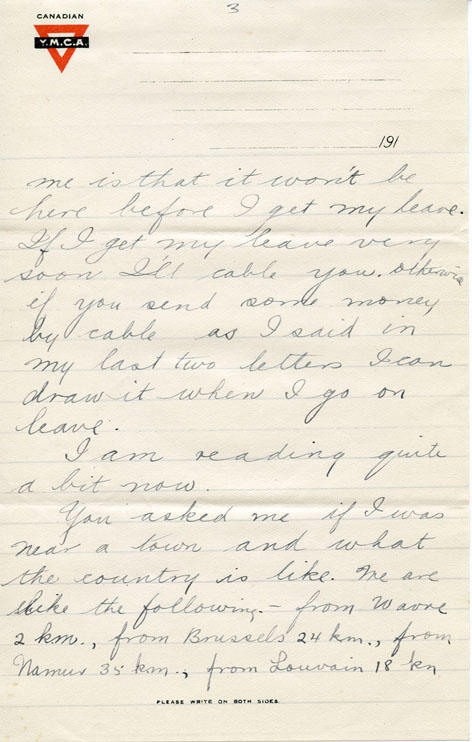 3
CANADIAN
Y.M.C.A.
191
me is that it won't be
here before I get my leave.
If I get my leave very
soon I'll cable you. otherwise
if you send some money
by cable as I said in
my last two letters I can
draw it when I go on
leave.
I am reading quite
a bit now.
You asked me if I was
near a town and what
the country is like. We are
like the following. - from Wavre
2 km., from Brussels 24 km., from
Namur 35 km., from Louvain 18 km
PLEASE WRITE ON BOTH SIDES